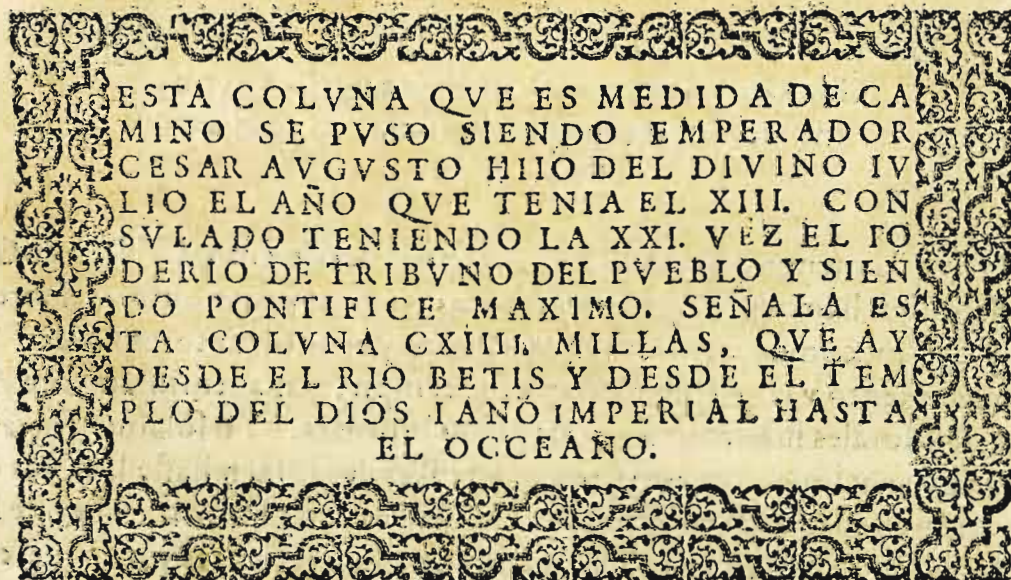 ESTA COLVNA QVE ES MEDIDA DE CA
MINO SE PVSO SIENDO EMPERADOR
CESAR AVGVSTO HIIO DEL DIVINO IV
LIO EL AÑO QVE TENIA EL XIII. CON
SVLADO TENIENDO LA XXI. VEZ EL PO
DERIO DE TRIBVNO DEL PVEBLO Y SIEN
DO PONTIFICE MAXIMO. SEÑALA ES
TA COLVNA CXIIII. MILLAS, QVE AY
DESDE EL RIO BETIS Y DESDE EL TEM
PLO DEL DIOS IANO IMPERIAL HASTA
EL OCCEAÑO.